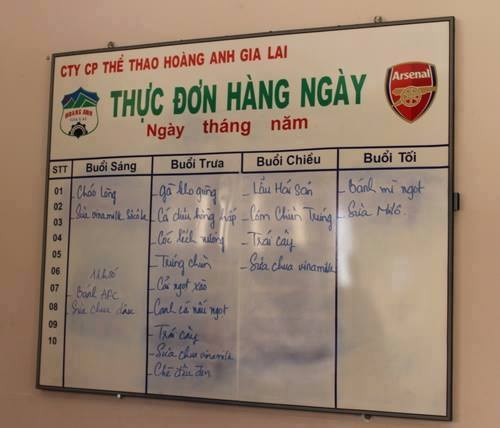 CTY CP THỂ THAO HOÀNG ANH GIA LAI
HOANG ANH
GIA LAI
Arsenal
THỰC ĐƠN HÀNG NGÀY
Ngày tháng năm
STT Buổi Sáng Buổi Trưa Buổi Chiều Buổi Tối
01
02
03
04
05
06
07
08
09
10
- Cháo lòng
- Sữa vinamilk
11h30
- Bánh AFC
- Sữa chua dâu
- Gà kho gừng
- Cá diêu hồng hấp
- Cóc lếch nướng
- Trứng chiên
- Cải ngọt xào
- Canh cá nấu ngọt
- Trái cây
- Sữa chua vinamilk
- Chè đậu đen
- Lẩu Hải Sản
- Cơm Chiên Trứng
- Trái cây
- Sữa chua vinamilk
- Bánh mì ngọt
- Sữa